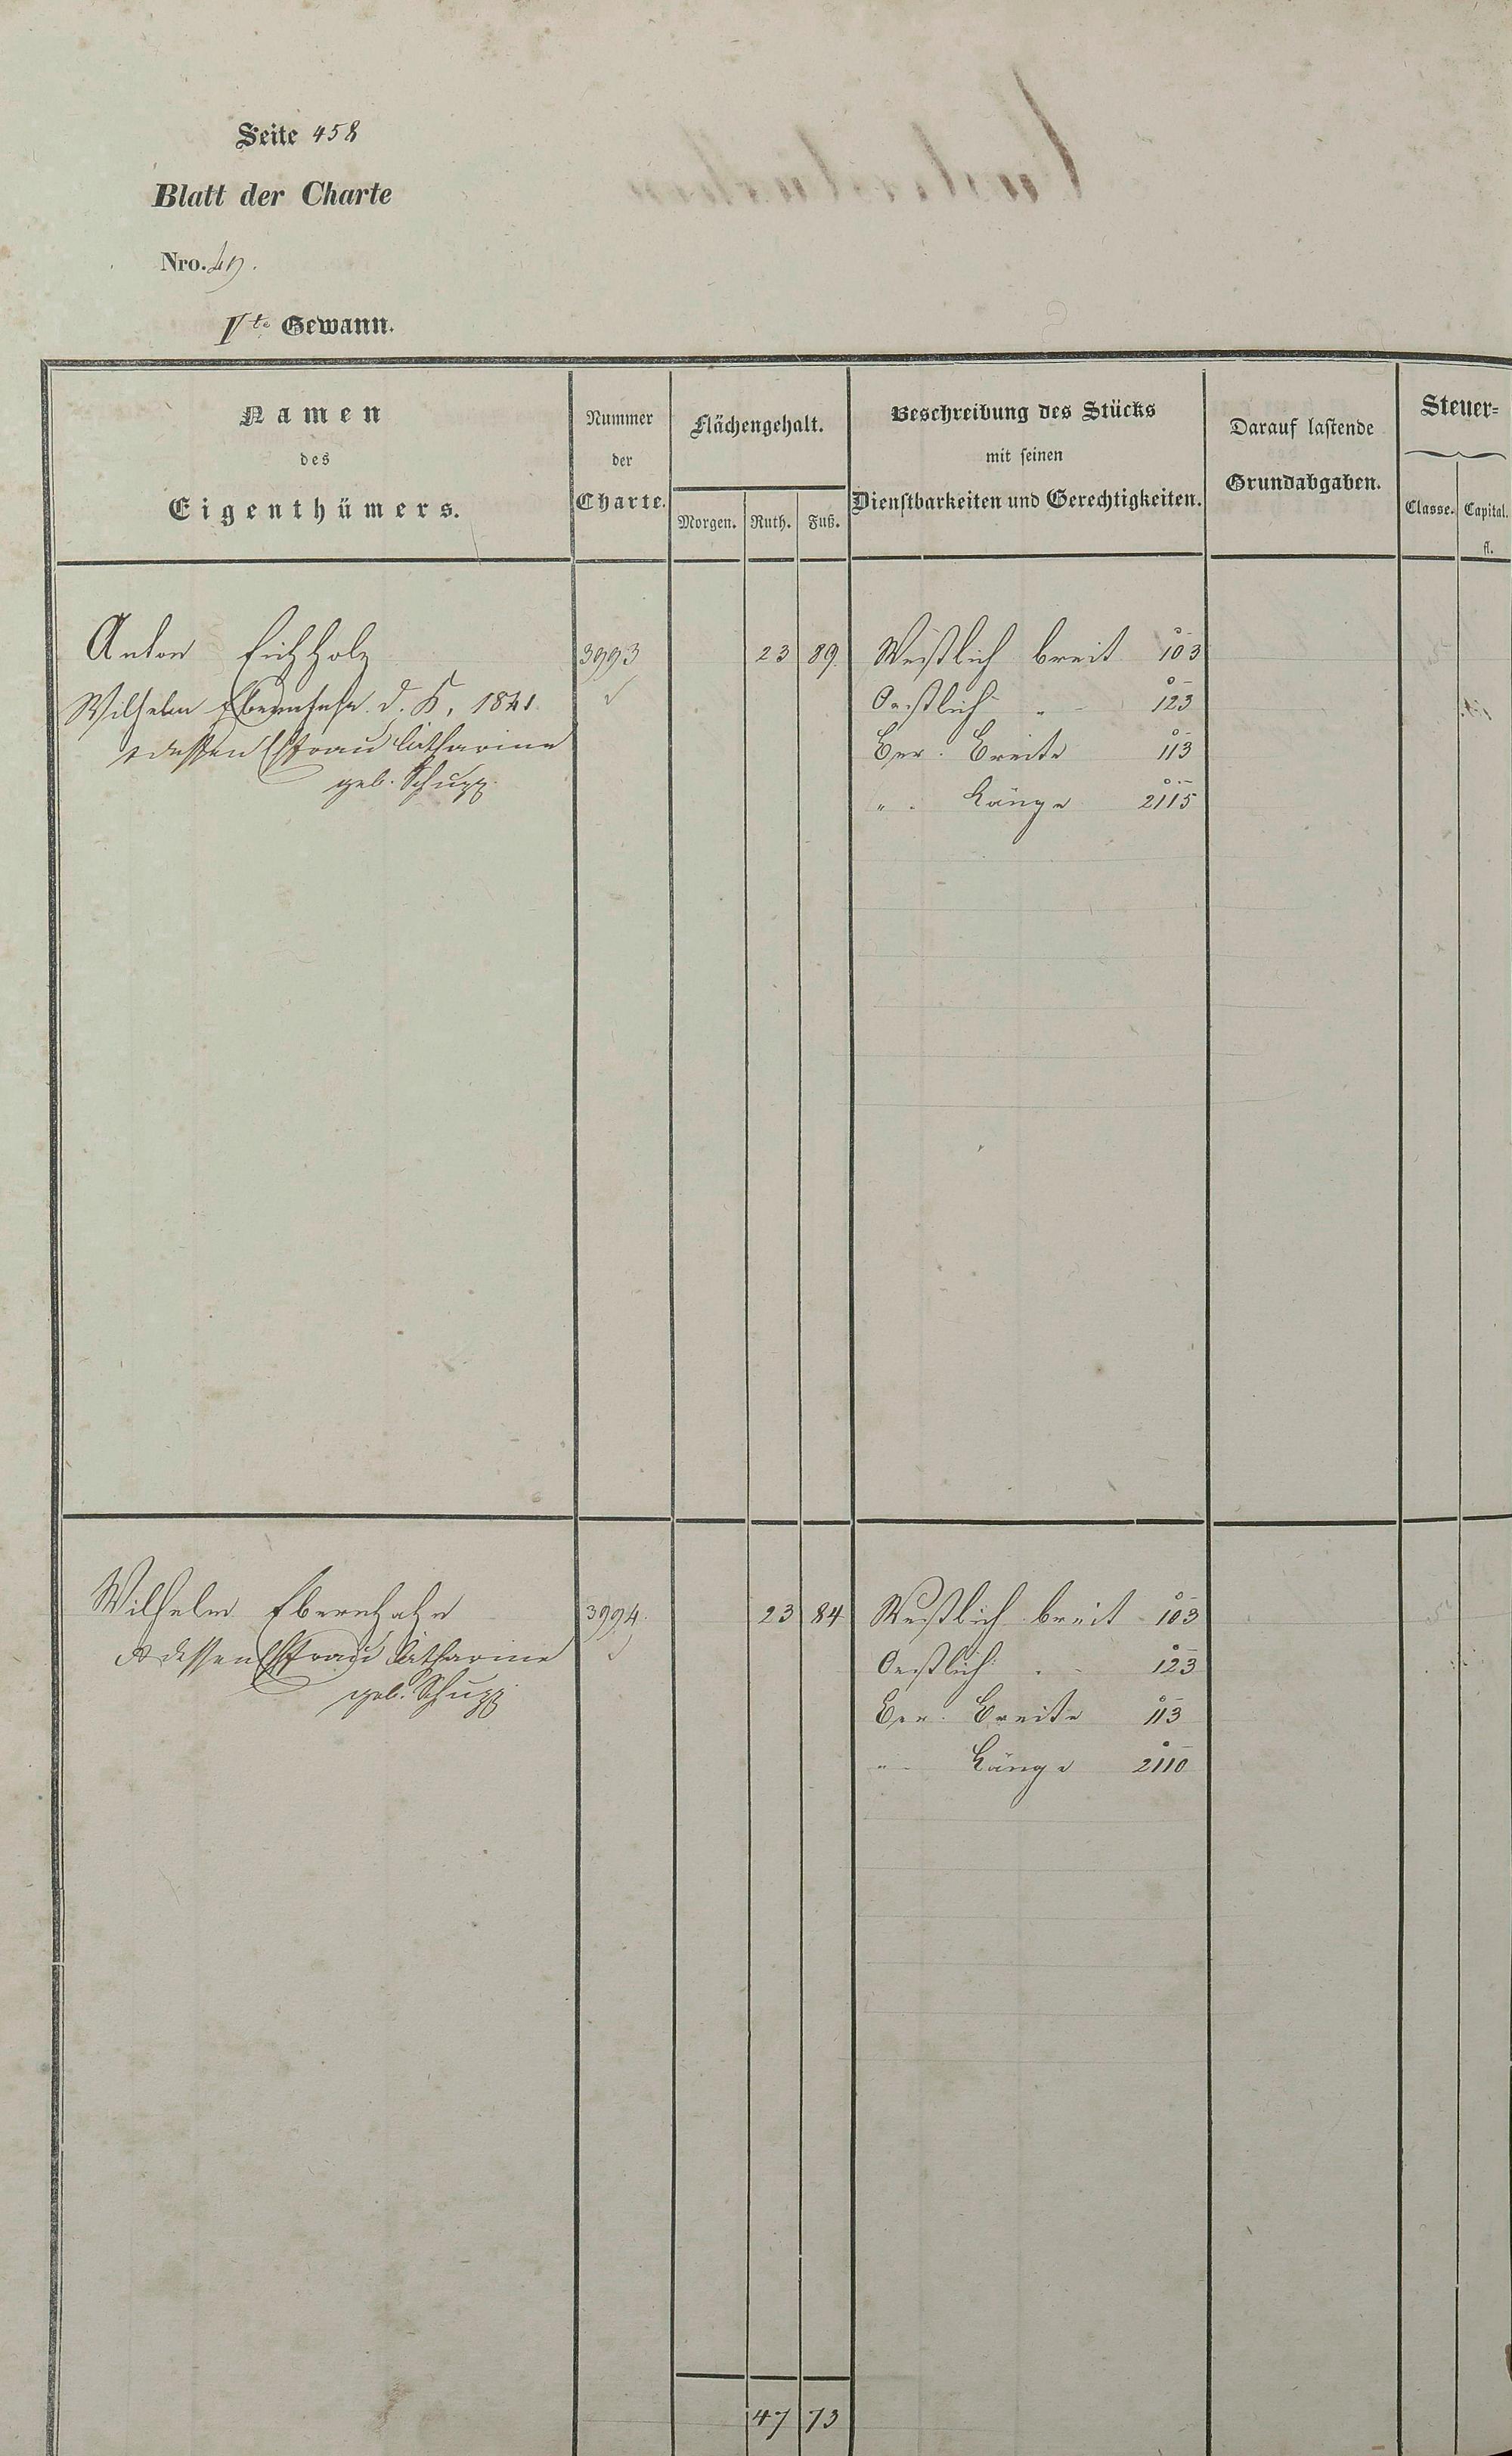 Seite 458
Blatt der Charte
Nro. 49.
Vte Gewann.
Namen des Eigenthümers.
Nummer der Charte.
Flächengehalt.
Morgen. Ruth. Fuß.
Beschreibung des Stücks mit seinen Dienstbarkeiten und Gerechtigkeiten.
Darauf lastende Grundabgaben.
Steuer=
Classe. Capital. fl.
Anton Eichholz 3993 23 89 Westlich breit 103
Wilhelm Ebernhahn d. K, 1841. Oestlich " 123
& dessen Ehfrau Catharine Ber. Breite 113
geb. Schupp. " Länge 2115
Wilhelm Ebernhahn 3994. 23 84 Westlich breit 103
& dessen Ehfrau Catharine Oestlich " 123
geb. Schupp Ber. Breite 113
" Länge 2110
47 73